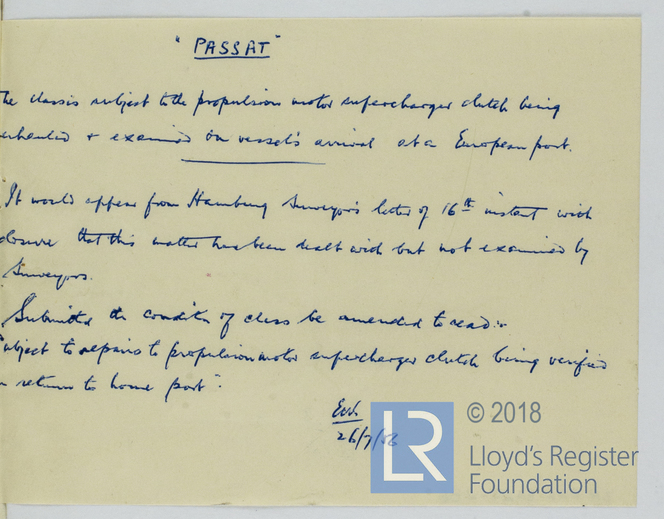 "PASSAT"
The class is subject to the propulsion motor supercharger clutch being
erhauled & examined on vessel's arrival at a European port.
It would appear from Hamburg Surveyor's letter of 16th instant with
closure that this matter has been dealt with but not examined by
Surveyors.
Submitted the condition of class be amended to read:-
subject to repairs to propulsion motor supercharger clutch being verified
n return to home port".
26/7/56
LR
© 2018
Lloyd's Register
Foundation